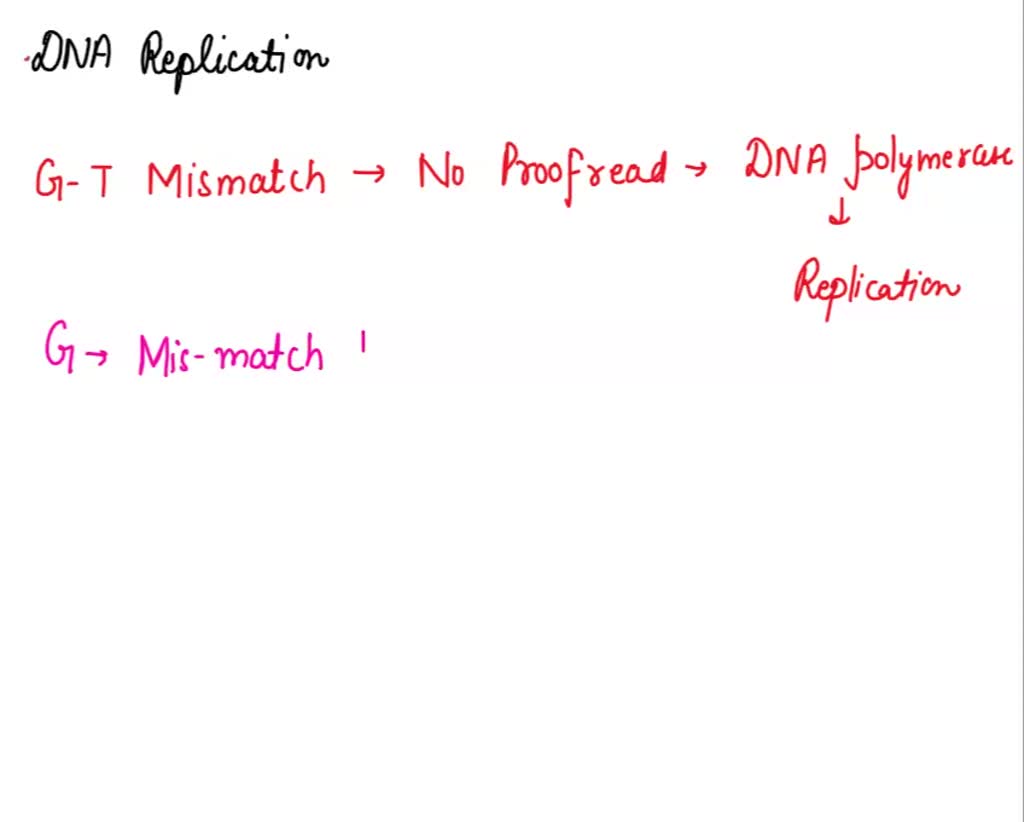 DNA Replication
G-T Mismatch → No Proofread → DNA polymerase
↓
Replication
G → Mis-match I